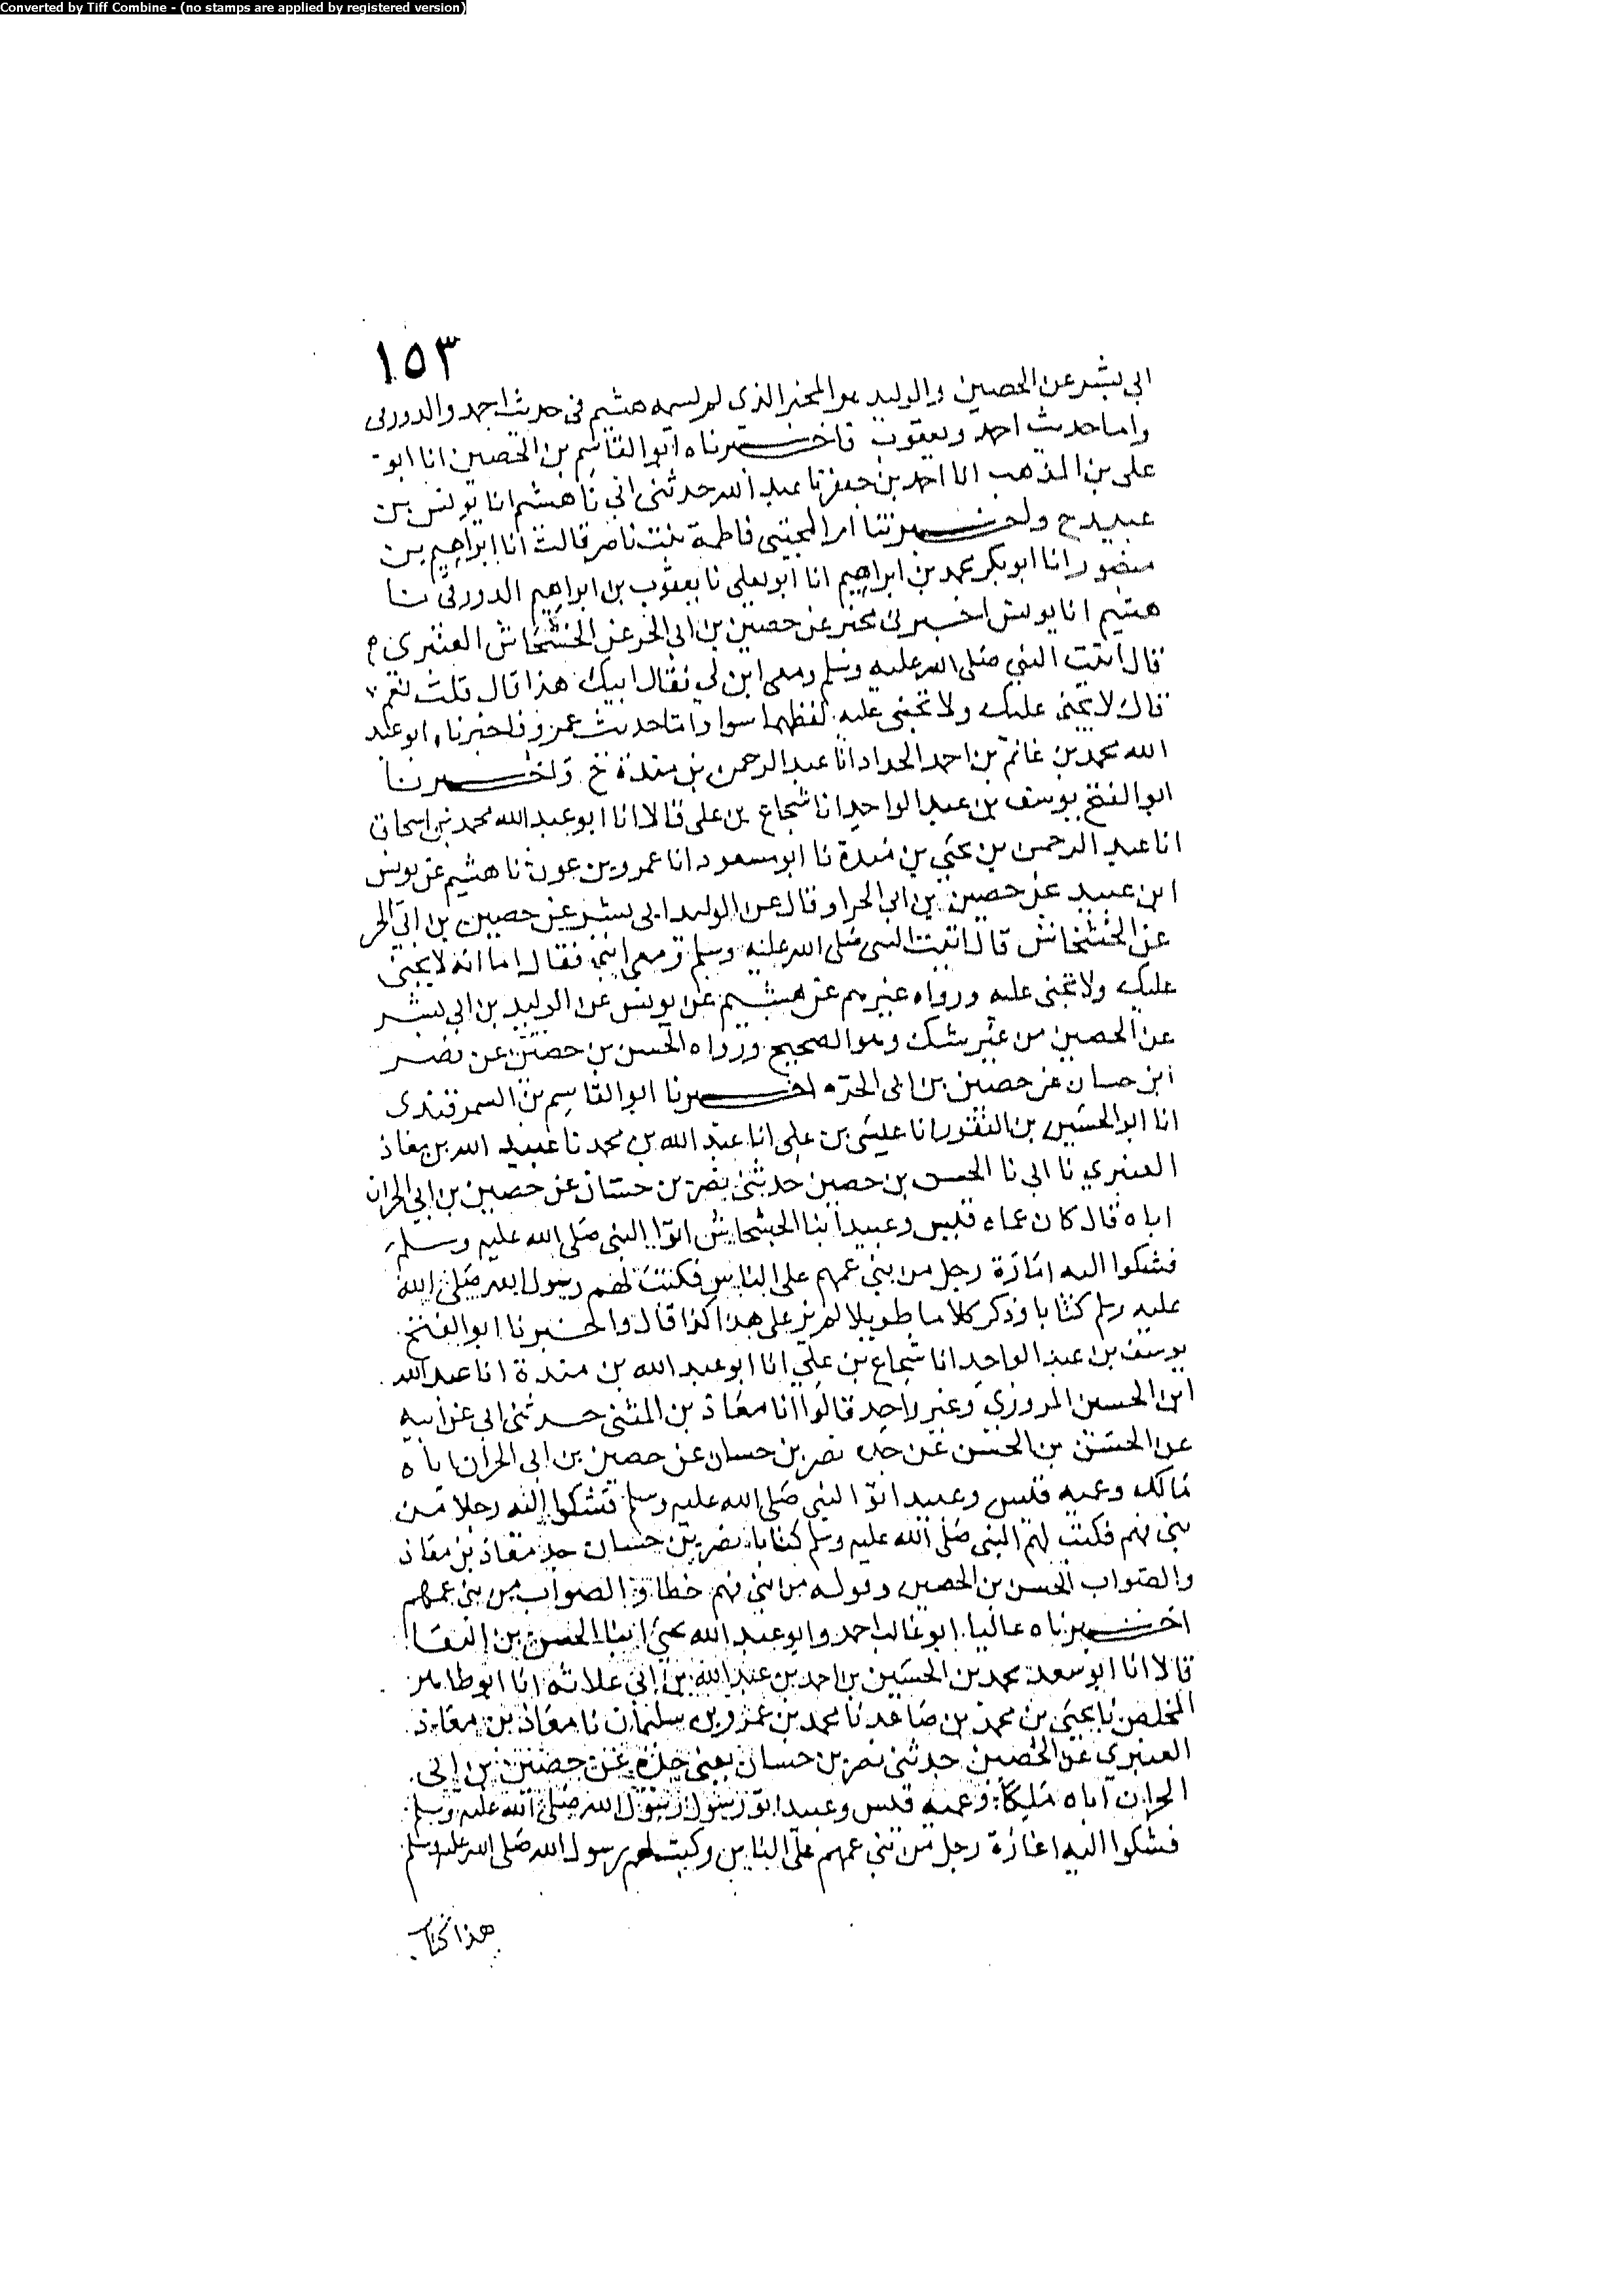 Converted by Tiff Combine - (no stamps are applied by registered version)
١٥٣
ابي بشر عن الحصين والوليد هو المخبر الذي لم يسمه هشيم في حديث احمد والدورقي
واما حديث احمد ويعقوب فاخبرناه ابو القاسم بن الحصين انا ابو
علي بن المذهب انا احمد بن جعفر نا عبد الله حدثني ابي نا هشيم انا يونس بن
عبيد ح واخبرتنا ام المجتبى فاطمة بنت ناصر قالت انا ابراهيم بن
منصور انا ابو بكر محمد بن ابراهيم انا ابو يعلى نا يعقوب بن ابراهيم الدورقي نا
هشيم انا يونس اخبرني مخبر عن حصين بن ابي الحر عن الخشخاش العنبري
قال اتيت النبي صلى الله عليه وسلم ومعي ابن لي فقال ابنك هذا قال قلت نعم
قال لا يجني عليك ولا تجني عليه لفظهما سوا واما حديث عمرو فاخبرناه ابو عبد
الله محمد بن غانم بن احمد الحداد انا عبد الرحمن بن مندة ح واخبرنا
ابو الفتح يوسف بن عبد الواحد انا شجاع بن علي قالا انا ابو عبد الله محمد بن اسحاق
انا عبد الرحمن بن يحيى بن مندة نا ابو مسعود انا عمرو بن عون نا هشيم عن يونس
ابن عبيد عن حصين بن ابي الحر او قال عن الوليد ابي بشر عن حصين بن ابي الحر
عن الخشخاش قال اتيت النبي صلى الله عليه وسلم ومعي ابني فقال اما انه لا يجني
عليك ولا تجني عليه ورواه غيرهم عن هشيم عن يونس عن الوليد بن ابي بشر
عن الحصين من غير شك وهو الصحيح ورواه الحسن بن حصين عن نصر
ابن حسان عن حصين بن ابي الحر اخبرنا ابو القاسم بن السمرقندي
انا ابو الحسين بن النقور انا عيسى بن علي انا عبد الله بن محمد نا عبيد الله بن معاذ
العنبري نا ابي نا الحسن بن حصين حدثني نصر بن حسان عن حصين بن ابي الحر ان
اباه قال كان عماه قيس وعبيد ابنا الخشخاش اتوا النبي صلى الله عليه وسلم
فشكوا اليه اغارة رجل من بني عمهم على الناس فكتب لهم رسول الله صلى الله
عليه وسلم كتابا وذكر كلاما طويلا لم يزد على هذا كذا قال واخبرنا ابو الفتح
يوسف بن عبد الواحد انا شجاع بن علي انا ابو عبد الله بن مندة انا عبد الله
ابن الحسين المروزي وغير واحد قالوا انا معاذ بن المثنى حدثني ابي عن ابيه
عن الحسن بن الحسن عن جده نصر بن حسان عن حصين بن ابي الحر ان اباه
مالك وعميه قيس وعبيد اتوا النبي صلى الله عليه وسلم فشكوا اليه رجلا من
بني فهم فكتب لهم النبي صلى الله عليه وسلم كتابا نصر بن حسان جد معاذ بن معاذ
والصواب الحسن بن الحصين وقوله من بني فهم خطا والصواب من بني عمهم
اخبرناه عاليا ابو غالب احمد وابو عبد الله يحيى ابنا الحسن بن البنا
قالا انا ابو سعد محمد بن الحسين بن احمد بن عبد الله بن ابي علاثة انا ابو طاهر
المخلص نا يحيى بن محمد بن صاعد نا محمد بن عمرو بن سليمان نا معاذ بن معاذ
العنبري عن الحصين حدثني نصر بن حسان يعني جده عن حصين بن ابي
الحر ان اباه مليكا وعميه قيس وعبيد اتو رسول رسول الله صلى الله عليه وسلم
فشكوا اليه اغارة رجل من بني عمهم على الناس وكتب لهم رسول الله صلى الله عليه وسلم
هذا كتاب